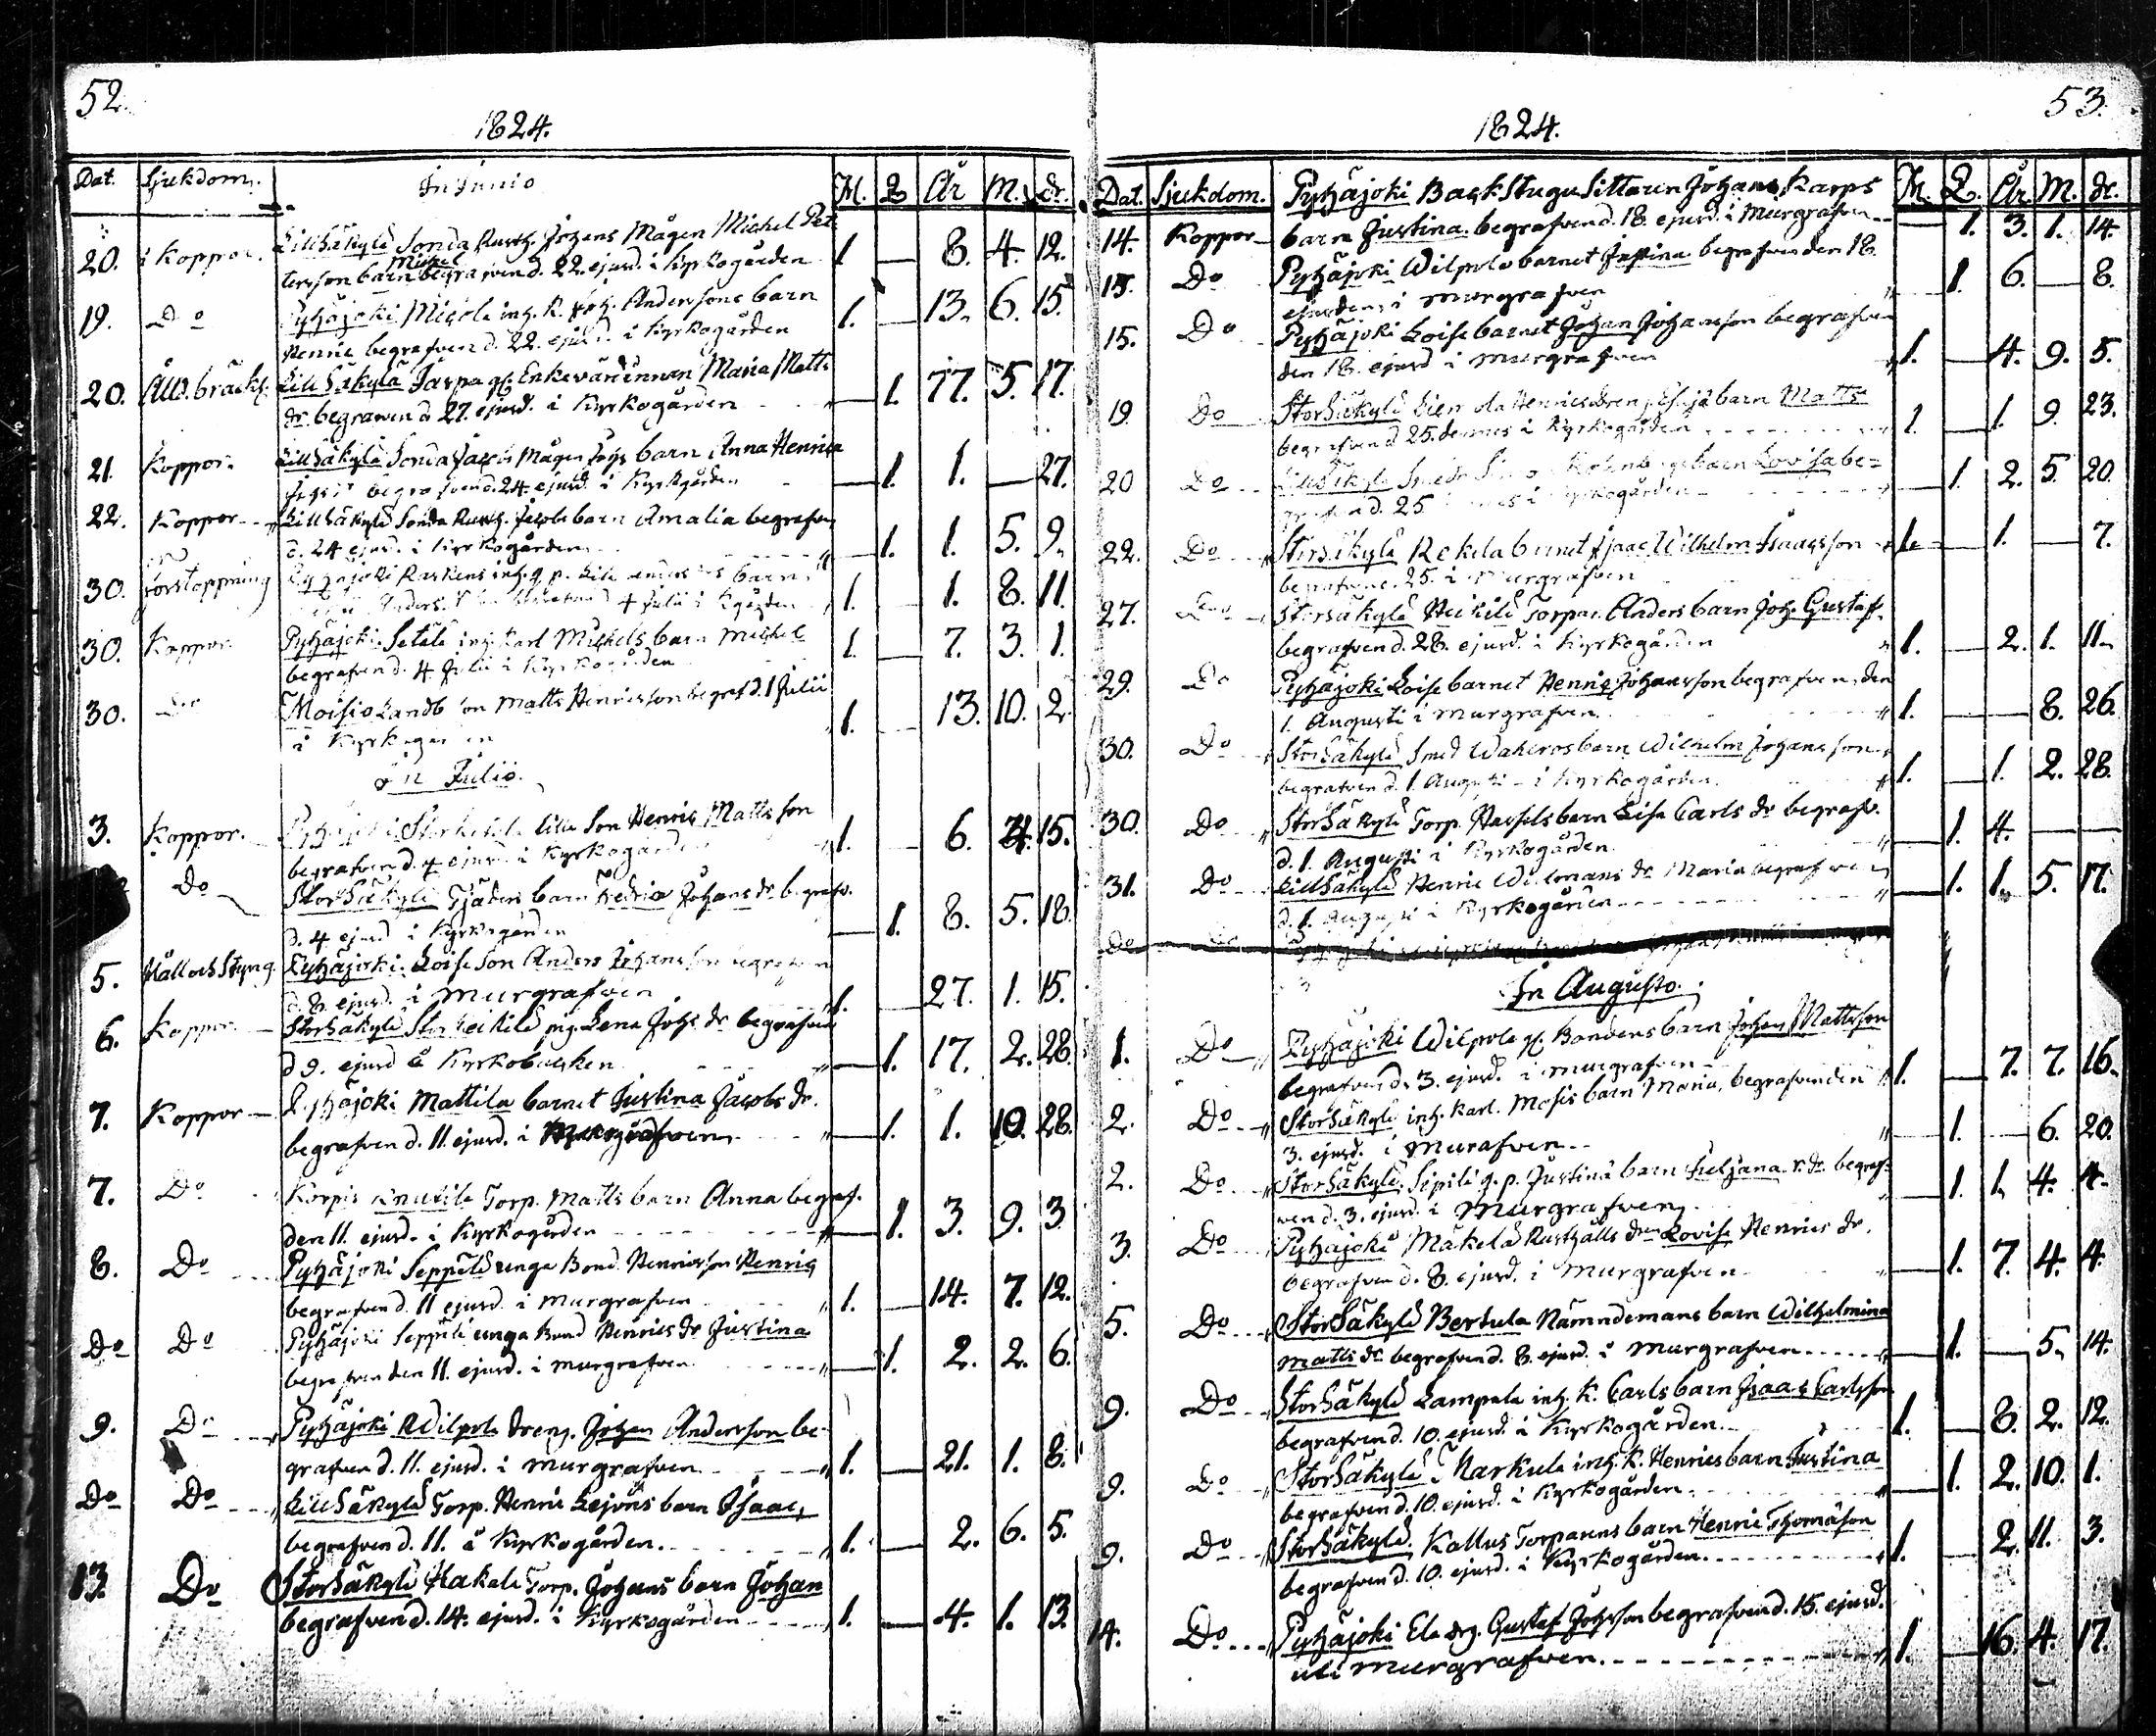 52.
1824.
Dat. Sjukdom. In Junio M. Q År M. dr.
20. i Koppor. LillSäkylä Sonda Rusth. Johans Mågen Michel Pet
tersson barn Michel begrafven d. 22. ejusd. i Kyrkogården 1 — 8. 4. 12.
19. Do Pyhäjoki Micola inh. K. Joh. Anderssons barn
Henric begrafven d. 22. ejusd. i Kyrkogården 1. — 13. 6. 15.
20. Ålld. bräckl. LillSäkylä Jaspa gl. Enkevärdinnan Maria Matts
dr begrawen d 27. ejusd. i Kyrkogården — 1. 77. 5. 17.
21. Koppor. LillSäkylä Sonda Jacobs Mågen Johs barn Anna Henrica
begrafven d. 24. ejusd. i Kyrkgården — 1. 1. — 27.
22. Koppor LillSäkylä Sonda Rusth. Jacobs barn Amalia begrafven
d. 24 ejusd. i Kyrkogården — 1. 1. 5. 9.
30. förstoppning Pyhäjoki Raskens inh. q. p. barn
Anders 4 Julii i Kgården 1. — 1. 8. 11.
30. Koppor. Pyhäjoki Setälä inh. Karl Michels barn Michel
begrafven d. 4 Julii i Kyrkogården 1. — 7. 3. 1.
30. Do Moisio Landb son Matts Henricsson begraf d. 1 Julii
i Kyrkogården 1. — 13. 10. 2.
In Julio.
3. Koppor. Pyhäjoki lille Son Henric Mattsson
begrafven d. 4 ejusd. i Kyrkogården 1. — 6. 4. 15.
Do StorSäkylä Gjäders barn Fredrica Johans dr begrafv.
d. 4 ejusd i Kyrkogården — 1. 8. 5. 18.
5. Håll och Styng. Pyhäjoki Loise Son Anders Johansson begrafven
d. 8. ejusd. i murgrafven 1. — 27. 1. 15.
6. Koppor StorSäkylä Storheikilä pig. Lena Johs dr begrafven
d 9. ejusd å Kyrkobacken — 1. 17. 2. 28.
7. Koppor Pyhäjoki Mattila barnet Justina Jacobs dr.
begrafven d. 11. ejusd. i Murgrafven — 1. 1. 10. 28.
7. Do Korpis Knutila Torp. Matts barn Anna begraf.
den 11. ejusd. i Kyrkogården — 1. 3. 9. 3
8. Do Pyhäjoki Seppälä unga Bond. Henricsson Henric
begrafven d. 11 ejusd. i murgrafven 1. — 14. 7. 12.
Do Do Pyhäjoki Seppälä unga Bond Henrics dr Justina
begrafven den 11. ejusd. i murgrafven — 1. 2. 2. 6.
9. Do Pyhäjoki Wilpola dreng. Johan Andersson be-
grafven d. 11. ejusd. i murgrafven 1. — 21. 1. 8.
Do Do LillSäkylä Torp. Henric Lejons barn Isaac,
begrafven d. 11. å Kyrkogården. 1. — 2. 6. 5.
13. Do StorSäkylä Hakala Torp. Johans barn Johan
begrafven d. 14. ejusd. i Kyrkogården 1. — 4. 1. 13.
53.
1824.
Dat. Sjukdom. Pyhäjoki BackStuguSittaren Johans Karps M. Q. År. M. dr.
14. Koppor barn Justina. begrafven d. 18. ejusd. i Murgrafven — 1. 3. 1. 14.
15. Do Pyhäjoki Wilpola barnet Justina begrafven den 18.
ejusdem i murgrafven — 1. 6. — 8.
15. Do Pyhäjoki Loise barnet Johan Johansson begrafven
den 18. ejusd i murgrafven 1. — 4. 9. 5.
19 Do StorSäkylä barn Matts
begrafven d 25. dennes i Kyrkogården 1. — 1. 9. 23.
20 Do LillSäkylä Smeds barn Lovisa be=
grafven d. 25 dennes i Kyrkogården — 1. 2. 5. 20
22. Do StorSäkylä Rekola barnet Isaac Wilhelm Isaacsson
begrafven d. 25. i murgrafven 1. — 1. — 7.
27. Do StorSäkylä Heikilä Torpar. Anders barn Joh. Gustaf.
begrafven d. 28. ejusd. i Kyrkogården 1. — 2. 1. 11.
29. Do Pyhäjoki Loise barnet Henric Johansson begrafven den
1. Augusti i murgrafven 1. — — 8. 26.
30. Do StorSäkylä Smed Wahlroos barn Wilhelm Johansson
begrafven d. 1. Augusti i Kyrkogården 1. — 1. 2. 28.
30. Do StorSäkylä Torp. Hassels barn Lisa Carls dr begrafv.
d. 1. Augusti i Kyrkogården. — 1. 4. — —
31. Do LillSäkylä Henric Willmans dr Maria begrafven
d. 1. Augusti i Kyrkogården — 1. 1. 5. 17.
In Augusto.
1. Do Pyhäjoki Wilpola gl. Bondens barn Johan Mattsson
begrafven d. 3. ejusd. i murgrafven 1. — 7. 7. 16.
2. Do StorSäkylä inh. Karl. Mosis barn Maria, begrafven den
3. ejusd. i Murafven — 1. — 6. 20.
2. Do StorSäkylä Sipilä q. p. Justina barn Juljana begraf=
ven d. 3. ejusd. i Murgrafven — 1. 1. 4. 4.
3. Do Pyhäjoki Mäkelä Rusthålls dren Lovisa Henrics dr.
begrafven d. 8. ejusd. i Murgrafven — 1. 7. 4. 4.
5. Do StorSäkylä Bertula Nämndemans barn Wilhelmina
Matts dr begrafven d. 8. ejusd. i Murgrafven — 1. — 5. 14.
9. Do StorSäkylä Lampola inh. K. Carls barn Isaac Carlsson
begrafven d. 10. ejusd. i Kyrkogården 1. — 8. 2. 12.
9. Do StorSäkylä Markula inh. K. Henrics barn Justina
begrafven d. 10. ejusd. i Kyrkogården. — 1. 2. 10. 1.
9. Do StorSäkylä Kallus Torparens barn Henric Thomasson
begrafven d. 10. ejusd. i Kyrkogården 1. — 2. 11. 3.
14. Do Pyhäjoki Ela drg. Gustaf Johsson begrafven d. 15. ejusd.
uti murgrafven. 1. — 16. 4. 17.